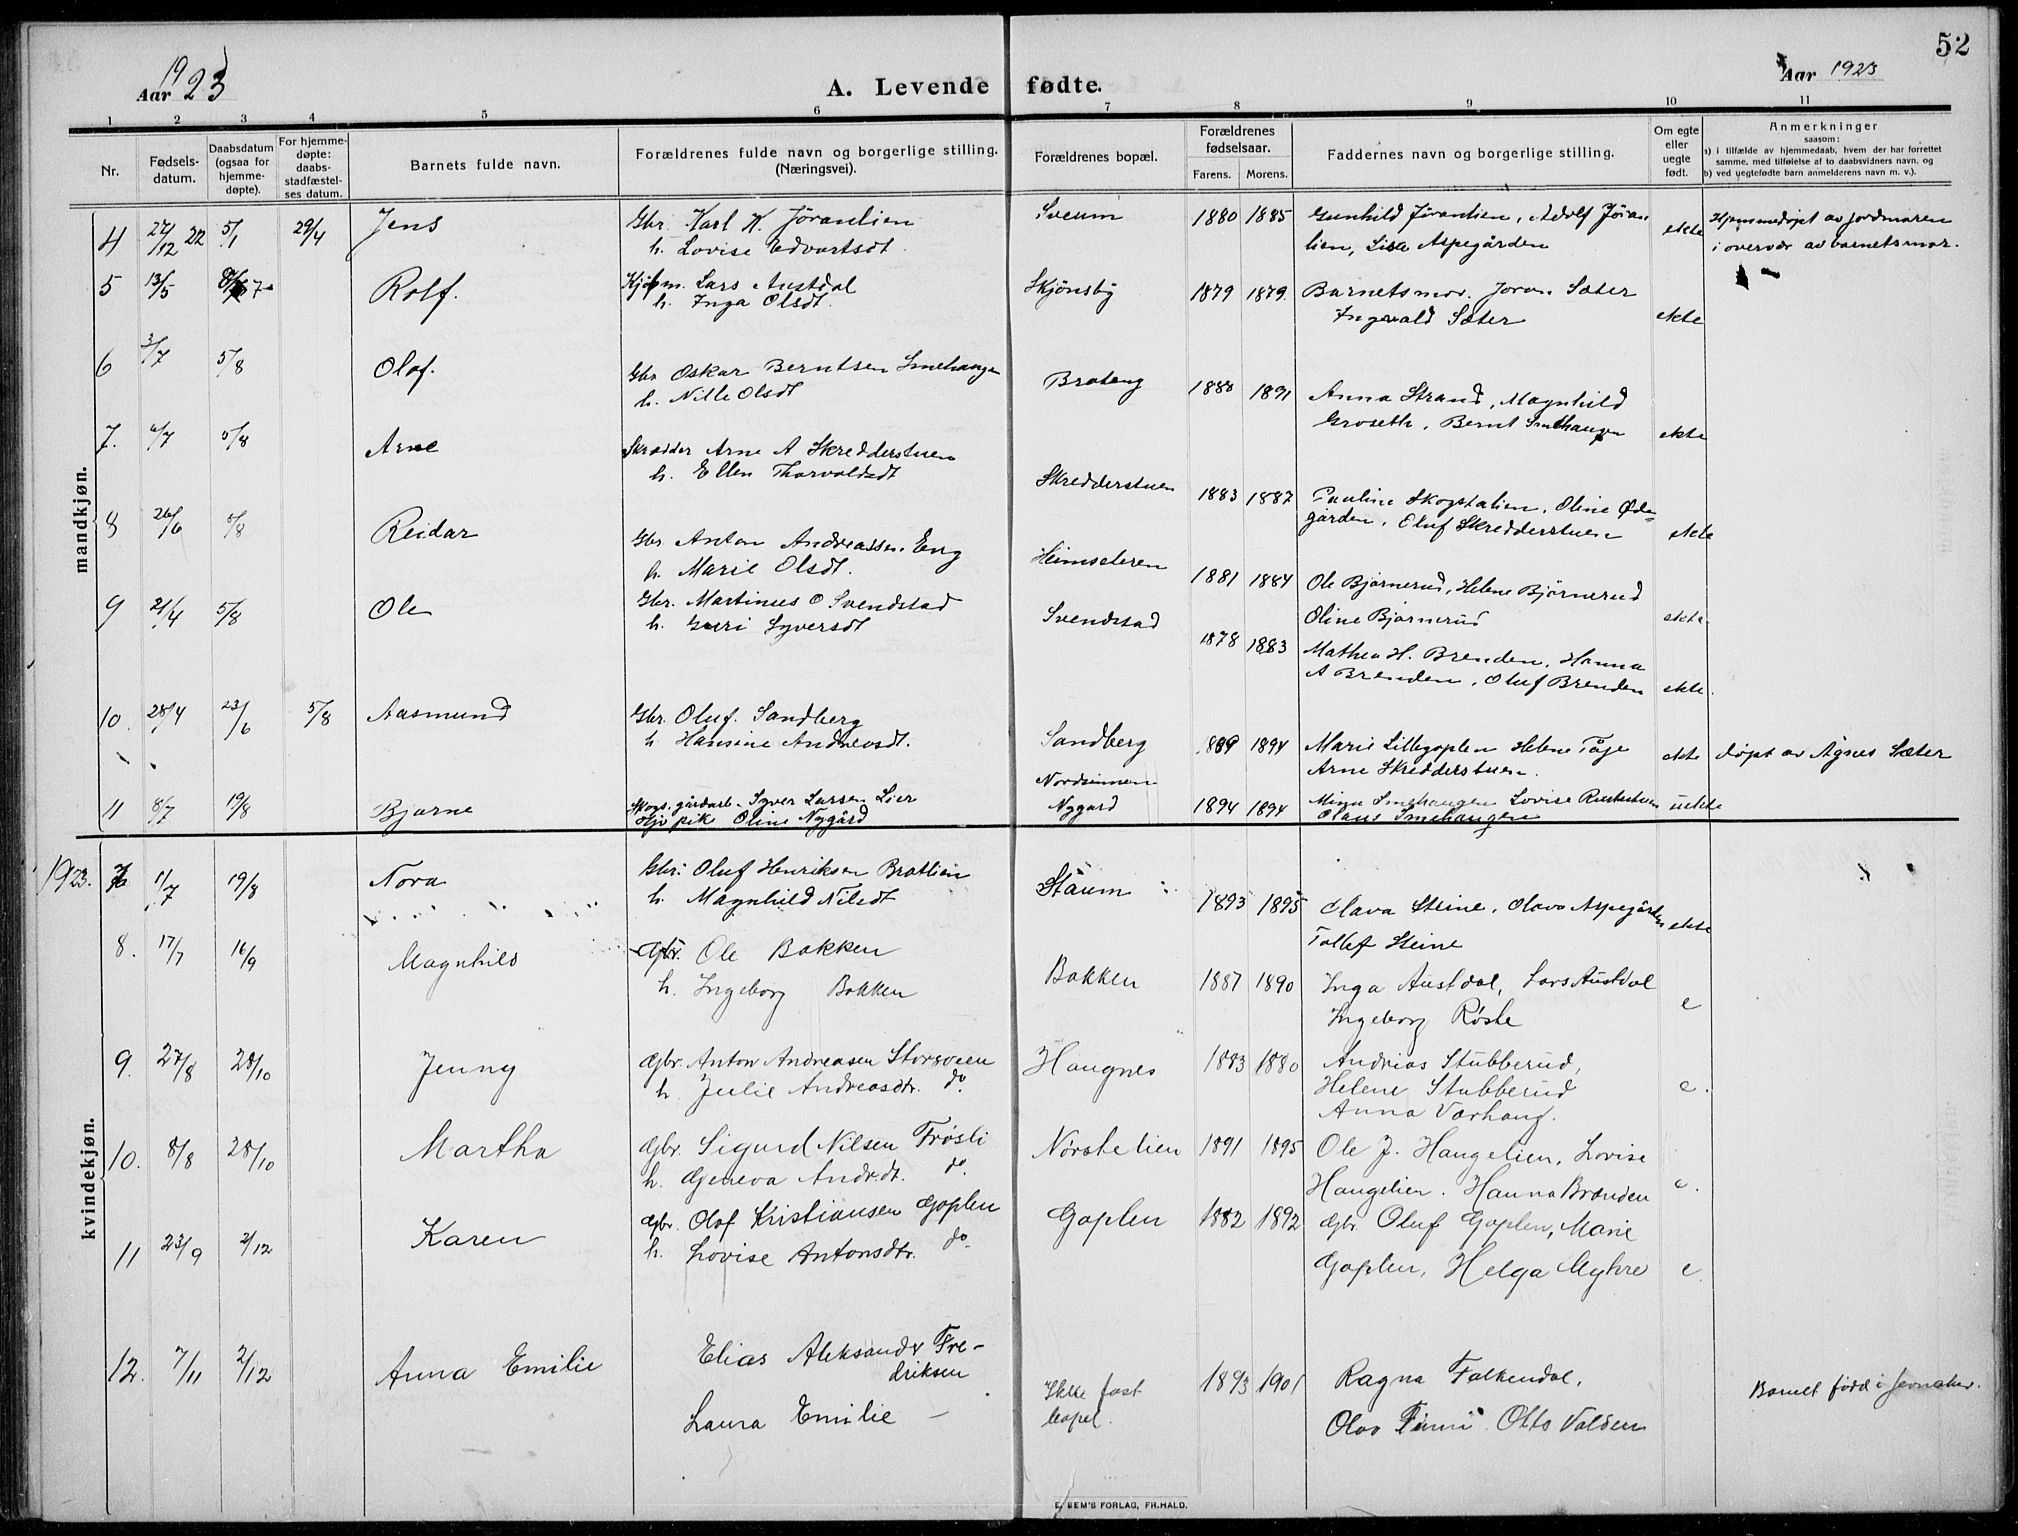 52
Aar 1923
A. Levende fødte.
Aar 1923
1 2 3 4 5 6 7 8 9 10 11
Nr.
Fødsels-
datum.
Daabsdatum
(ogsaa for
hjemme-
døpte).
For hjemme-
døpte:
daabs-
stadfæstel-
ses datum.
Barnets fulde navn.
Forældrenes fulde navn og borgerlige stilling.
(Næringsvei).
Forældrenes bopæl.
Forældrenes
fødselsaar.
Farens. Morens.
Faddernes navn og borgerlige stilling.
Om egte
eller
uegte
født.
Anmerkninger
saasom:
a) i tilfælde av hjemmedaab, hvem der har forrettet
samme, med tilføielse af to daabsvidners navn, og
b) ved uegtefødte barn anmelderens navn m. v.).
mandkjøn.
4 27/12 22 5/1 29/4 Jens Gbr. Karl K. Jørantlien Sveum 1880 1885 Gunhild Jørantlien, Adolf Jøran
h. Lovise Edvartsdt. lien, Lisa Aspegården ekte Hjemmedøpt av jordmoren
i overvær av barnets mor.
5 13/5 Rolf. Lars Austdal Skjønsby 1879 1879 Barnets mor. Joran Sæter
h. Inga Olsdt. Ingvald Sæter ekte
6 3/7 5/8 Olof. Gbr Oskar Berntsen Smehaugen Brateng 1891 Anna Strand, Magnhild
h. Nille Olsdt Groseth, Bernt Smehaugen ekte
7. 5/8 Arne Skrædder Arne A Skredderstuen Skredderstuen 1883 1887 Pauline Skogstalien, Oline Øde-
h. Ellen Thorvaldsdt gården, Oluf Skredderstuen ekte
8 26/6 5/8 Reidar Gbr Anton Andreassen Eng Heimseteren 1881 1884 Ole Bjørnerud, Helene Bjørnerud
h. Marie Olsdt. Oline Bjørnerud ekte
9 21/4 5/8 Ole Gbr. Martinus O Svendstad Svendstad 1878 1883 Mathea H. Brenden, Hanna
h. Guri Syversdt A Brenden, Oluf Brenden ekte.
10. 28/4 23/6 5/8 Aasmund Gbr. Oluf. Sandberg Sandberg 1894 Marie Lillegoplen Helene Tåje
h. Hansine Andreasdt. Arne Skredderstuen. ekte døpt av Agnes Sæter
11 8/7 19/8 Bjarne Skogs. gårdarb. Syver Larsen Lier Nordsinnen
pik Oline Nygård Nygard 1894 1894 Mina Smehaugen Lovise
Olaus Smehaugen uekte
kvindekjøn.
1923. 7 1/7 19/8 Nora Gbr. Oluf Henriksen Bratlien Staum 1893 1895 Olava Steine, Olava Aspegården ekte
h. Magnhild Nilsdt Tollef Steine
8. 17/7 16/9 Magnhild Gbr. Ole Bakken Bakken 1887 1890 Inga Austdal, Lars Austdal
h. Ingeborg Bakken Ingeborg Røste e
9. 27/8 28/10 Jenny Gbr. Anton Andreasen Storsveen Haugnes 1883 1880 Andreas Stubberud,
h. Julie Andreasdtr. do. Helene Stubberud e.
Anna Værhaug.
10. 8/8 28/10 Martha Gbr. Sigurd Nilsen Frøsli Nørstelien 1891 1895 Ole J. Haugelien, Lovise
h. Geneva Andr.dt. do. Haugelien. Hanna Brænden e.
11 23/9 2/12 Karen Gbr. Olof Kristiansen Goplen Goplen 1882 1892 Gbr. Oluf Goplen, Marie
h. Lovise Antonsdtr. do. Goplen, Helga Myhre e.
12. 7/11 2/12 Anna Emilie Elias Aleksander Fre-
driksen Ikke fast
bopel. 1893 1901 Ragna Falkendal,
Laura Emilie — Olav Otto Valden
Barnet født i Jevnaker.
E. SEM'S FORLAG, FR.HALD.